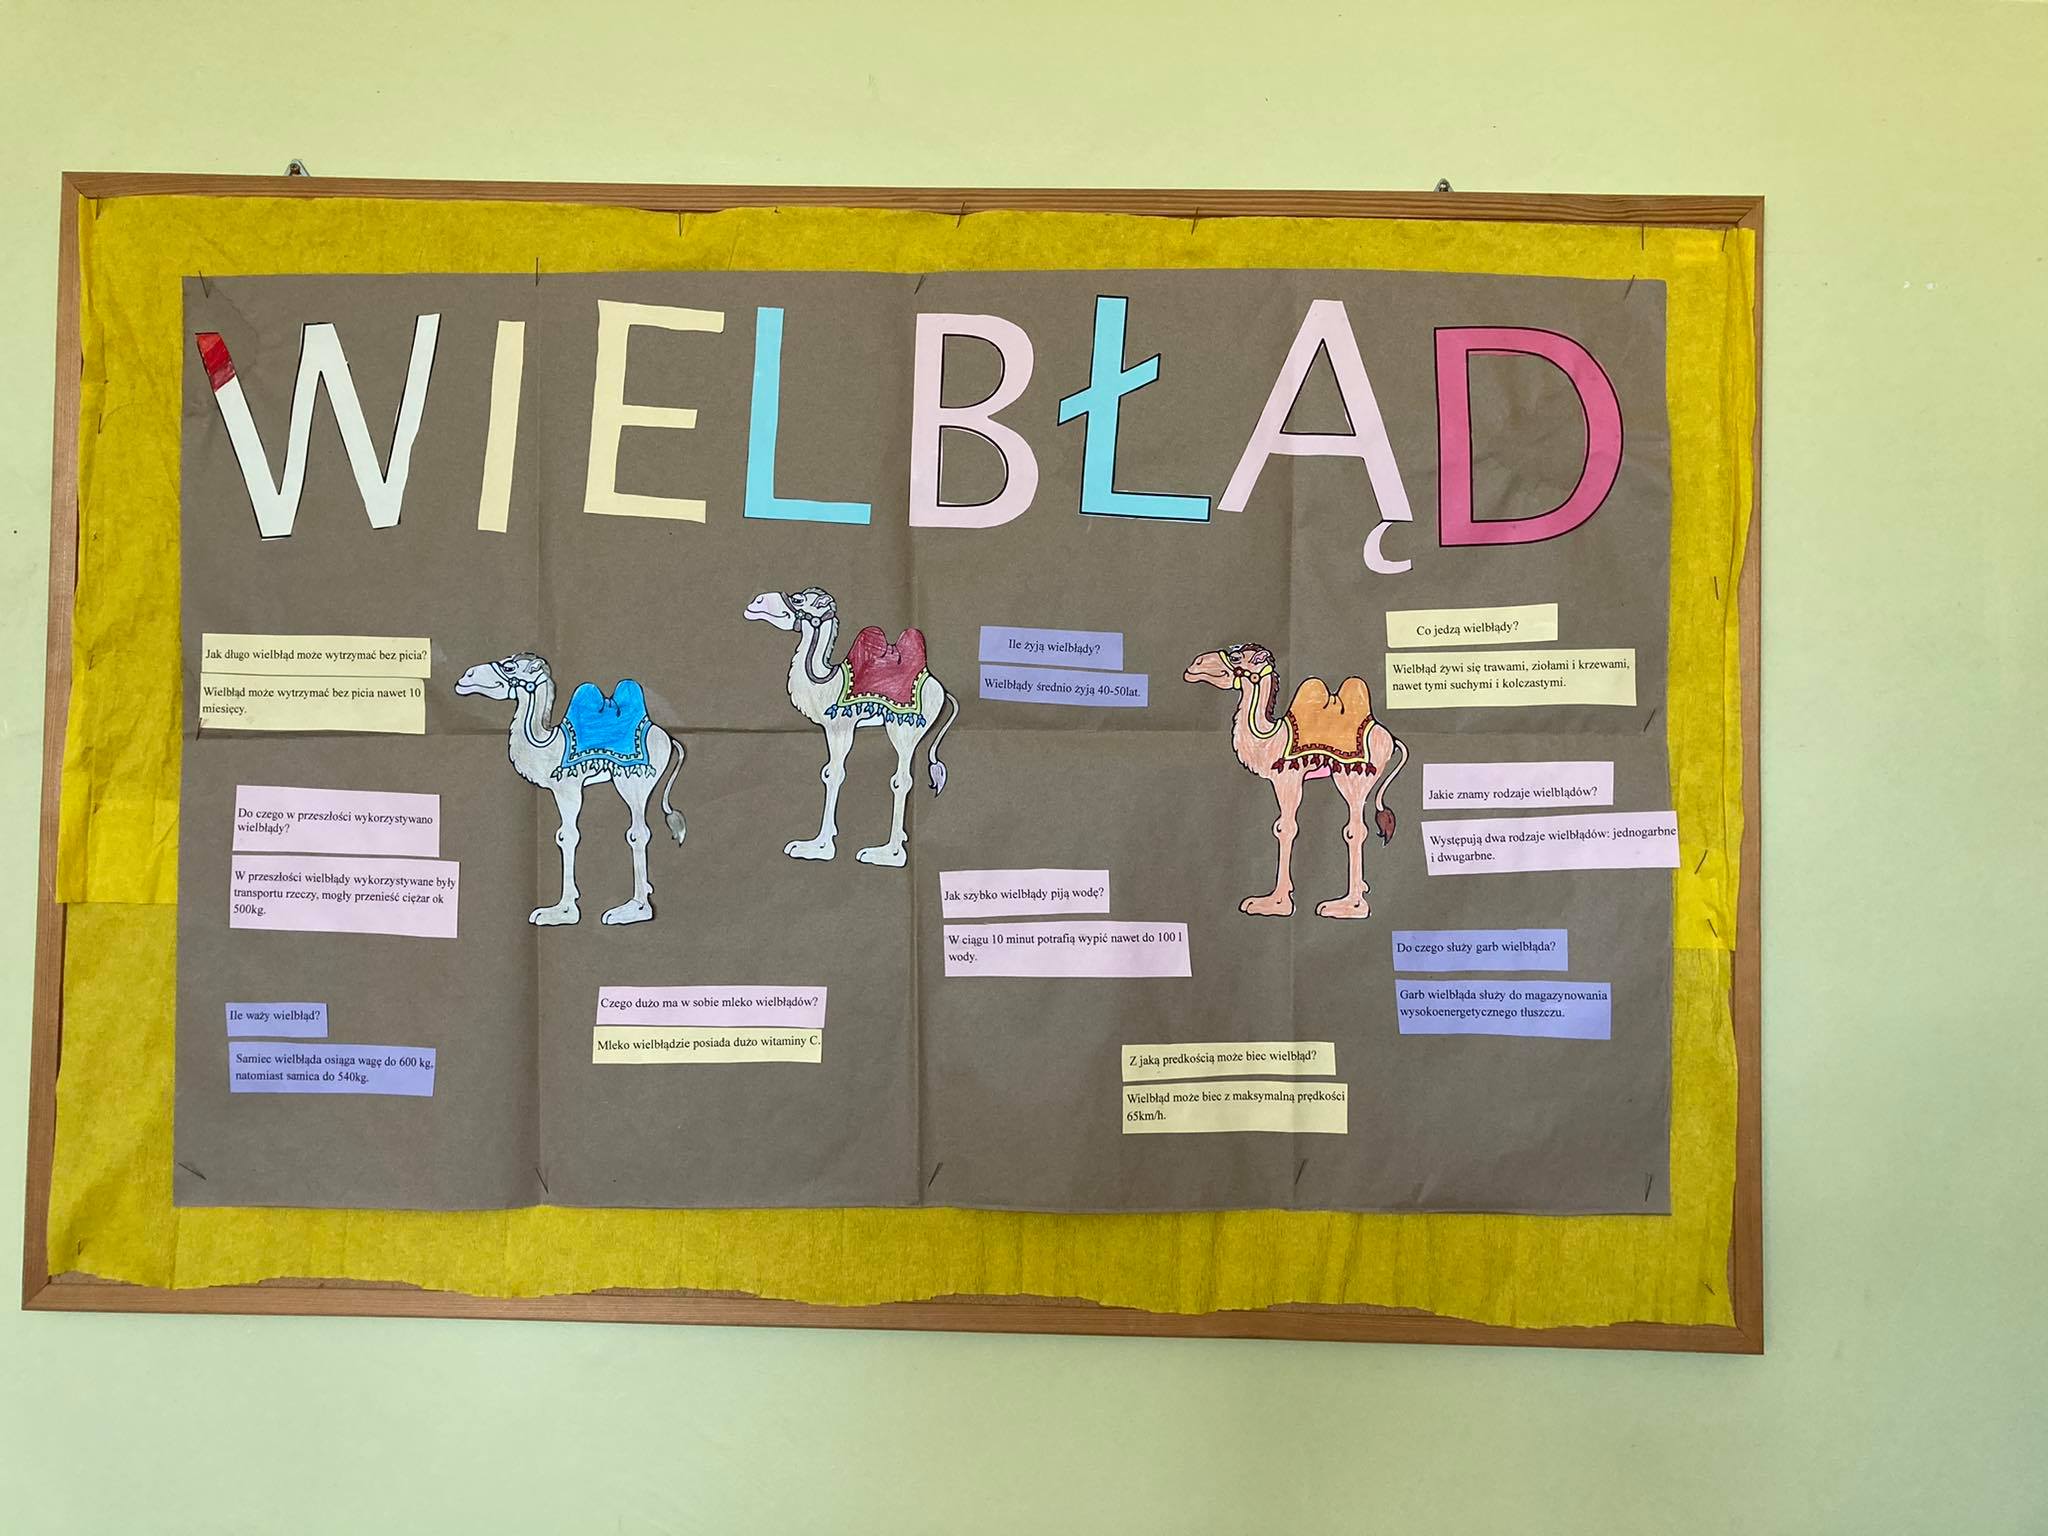 WIELBŁĄD
Jak długo wielbłąd może wytrzymać bez picia?
Wielbłąd może wytrzymać bez picia nawet 10
miesięcy.
Do czego w przeszłości wykorzystywano
wielbłądy?
W przeszłości wielbłądy wykorzystywane były
transportu rzeczy, mogły przenieść ciężar ok
500kg.
Ile waży wielbłąd?
Samiec wielbłąda osiąga wagę do 600 kg,
natomiast samica do 540kg.
Czego dużo ma w sobie mleko wielbłądów?
Mleko wielbłądzie posiada dużo witaminy C.
Ile żyją wielbłądy?
Wielbłądy średnio żyją 40-50lat.
Jak szybko wielbłądy piją wodę?
W ciągu 10 minut potrafią wypić nawet do 100 l
wody.
Z jaką predkością może biec wielbłąd?
Wielbłąd może biec z maksymalną prędkości
65km/h.
Co jedzą wielbłądy?
Wielbłąd żywi się trawami, ziołami i krzewami,
nawet tymi suchymi i kolczastymi.
Jakie znamy rodzaje wielbłądów?
Występują dwa rodzaje wielbłądów: jednogarbne
i dwugarbne.
Do czego służy garb wielbłąda?
Garb wielbłąda służy do magazynowania
wysokoenergetycznego tłuszczu.